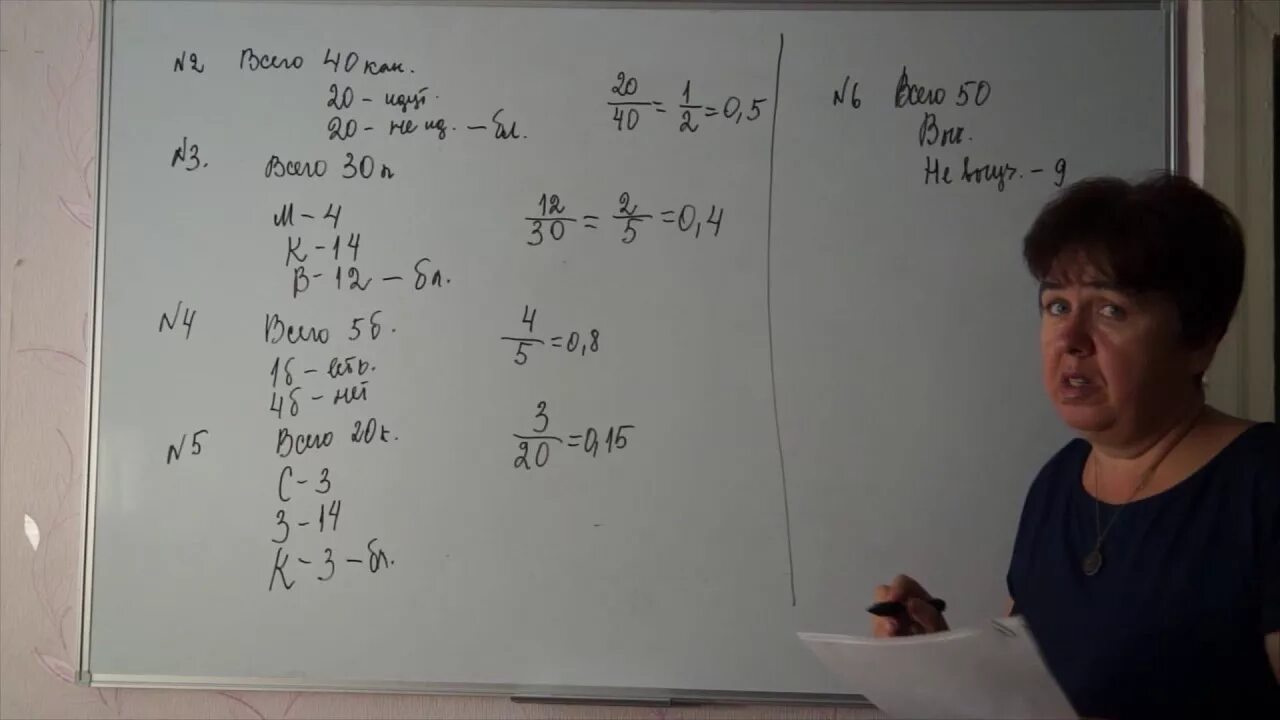 №2 Всего 40 кан.
20 – идут.
20 – не ид. – бл.
20/40 = 1/2 = 0,5
№3. Всего 30 п
М – 4
К – 14
В – 12 – бл.
12/30 = 2/5 = 0,4
№4 Всего 5 б.
1б – есть.
4б – нет
4/5 = 0,8
№5 Всего 20 к.
С – 3
З – 14
К – 3 – бл.
3/20 = 0,15
№6 Всего 50
Не выуч. – 9